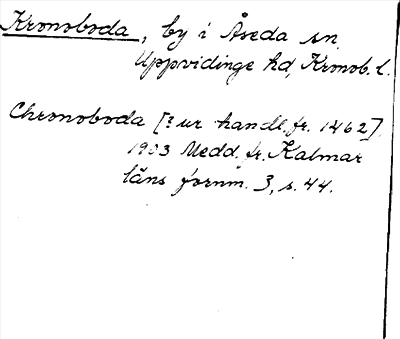 Kronoboda, by i Åseda sn,
Uppvidinge hd, Kronob. l.
Chronoboda [? ur handl. fr. 1462].
1903 Medd. fr. Kalmar
läns fornm. 3, s. 44.